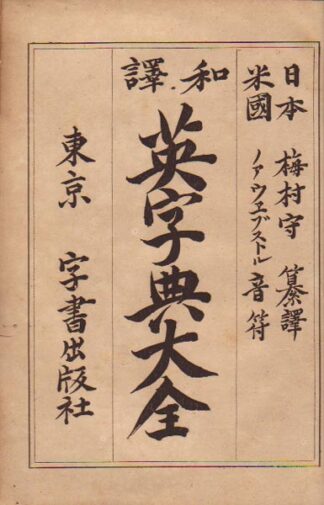 日本 梅村守 纂譯
米國 ノアウヱブストル 音符
和譯
英字典大全
東京 字書出版社